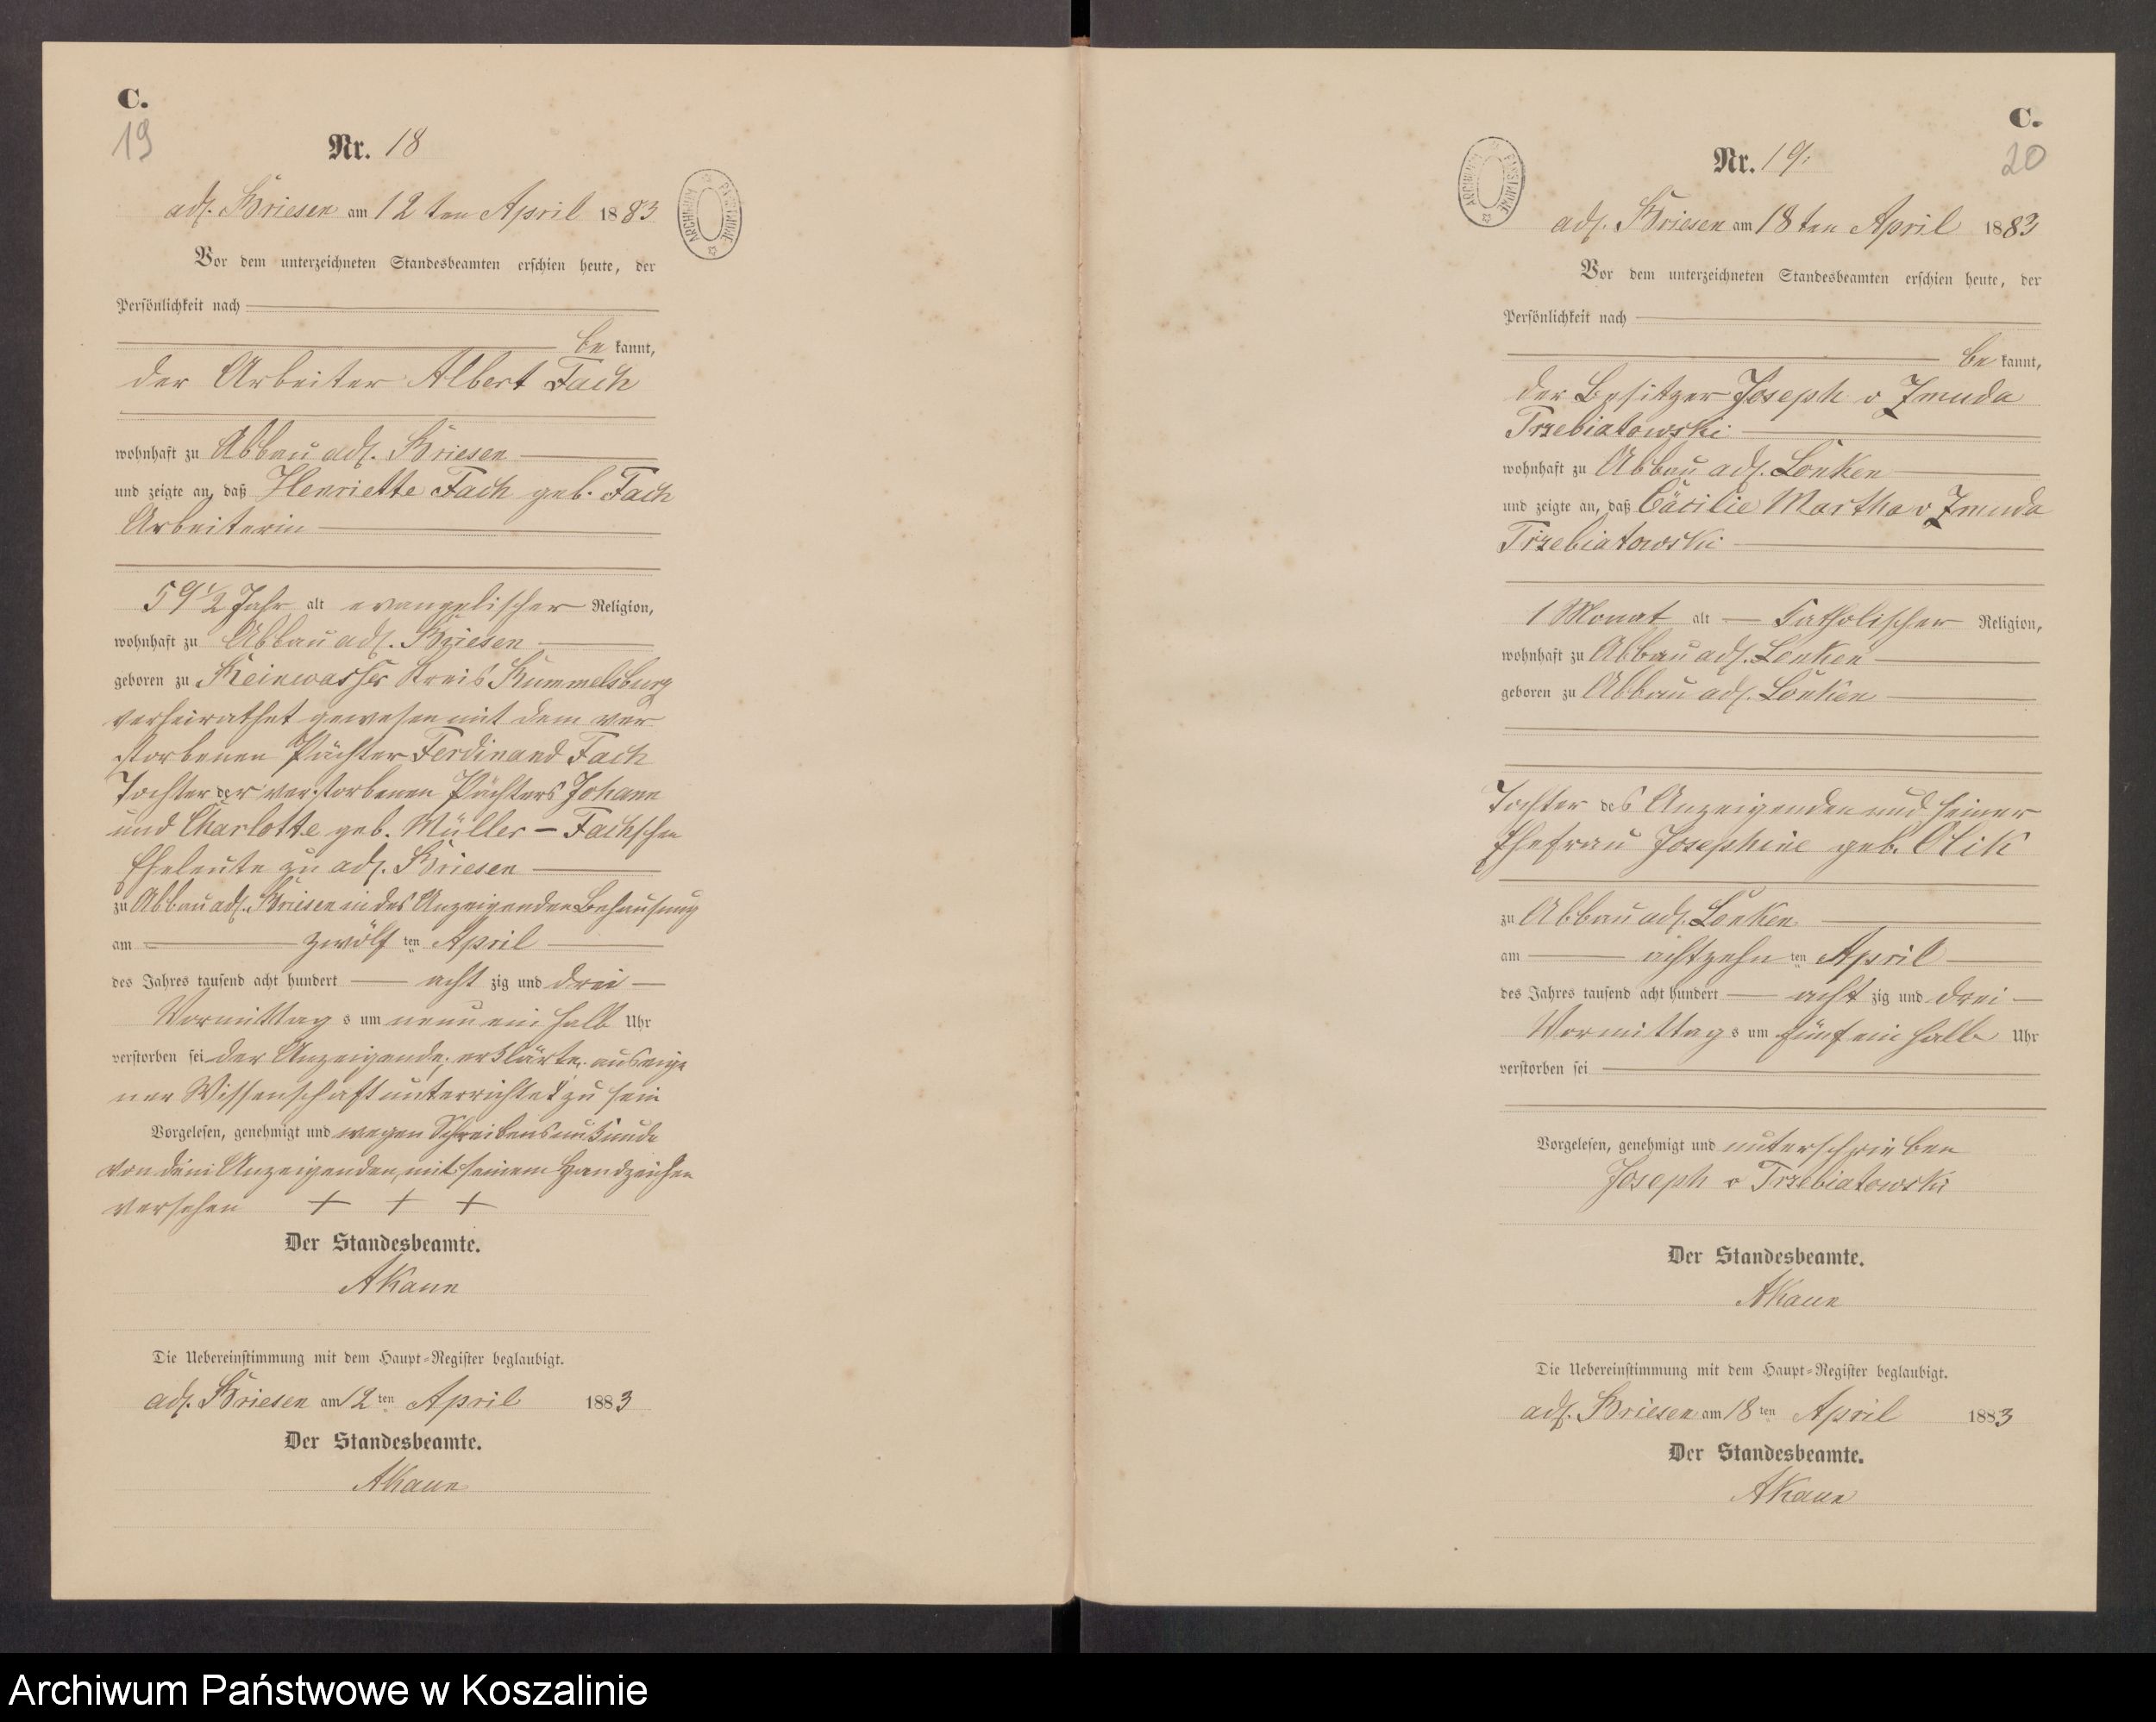 C.
19
Nr. 18
adl. Briesen am 12ten April 1883
Vor dem unterzeichneten Standesbeamten erschien heute, der
Persönlichkeit nach
be kannt,
der Arbeiter Albert Fach
wohnhaft zu Abbau adl. Briesen
und zeigte an, daß Henriette Fach geb. Fach
Arbeiterin
59 1/2 Jahr alt evangelischer Religion,
wohnhaft zu Abbau adl. Briesen
geboren zu Reinwasser Kreis Rummelsburg
verheirathet gewesen mit dem ver
storbenen Pächter Ferdinand Fach
Tochter der verstorbenen Pächters Johann
und Charlotte geb. Müller - Fachschen
Eheleute zu adl. Briesen
zu Abbau adl. Briesen in des Anzeigenden Behausung
am zwölf ten April
des Jahres tausend acht hundert acht zig und drei
Vormittag s um neun ein halb Uhr
verstorben sei der Anzeigende, erklärte, aus eige
ner Wissenschaft unterrichtet zu sein
Vorgelesen, genehmigt und wegen Schreibensunkunde
von dem Anzeigenden, mit seinem Handzeichen
versehen + + +
Der Standesbeamte.
AKaun
Die Uebereinstimmung mit dem Haupt-Register beglaubigt.
adl. Briesen am 12ten April 1883
Der Standesbeamte.
AKaun
ARCHIWUM PAŃSTWOWE
C.
20
Nr. 19.
ARCHIWUM PAŃSTWOWE
adl. Briesen am 18ten April 1883
Vor dem unterzeichneten Standesbeamten erschien heute, der
Persönlichkeit nach
be kannt,
der Besitzer Joseph v Zmuda
Trzebiatowski
wohnhaft zu Abbau adl. Lonken
und zeigte an, daß Cäcilie Martha v Zmuda
Trzebiatowski
1 Monat alt katholischer Religion,
wohnhaft zu Abbau adl. Lonken
geboren zu Abbau adl. Lonken
Tochter des Anzeigenden und seiner
Ehefrau Josephine geb.
zu Abbau adl. Lonken
am achtzehn ten April
des Jahres tausend acht hundert acht zig und drei
Vormittag s um fünf ein halb Uhr
verstorben sei
Vorgelesen, genehmigt und unterschrieben
Joseph v Trzebiatowski
Der Standesbeamte.
AKaun
Die Uebereinstimmung mit dem Haupt-Register beglaubigt.
adl. Briesen am 18ten April 1883
Der Standesbeamte.
AKaun
Archiwum Państwowe w Koszalinie